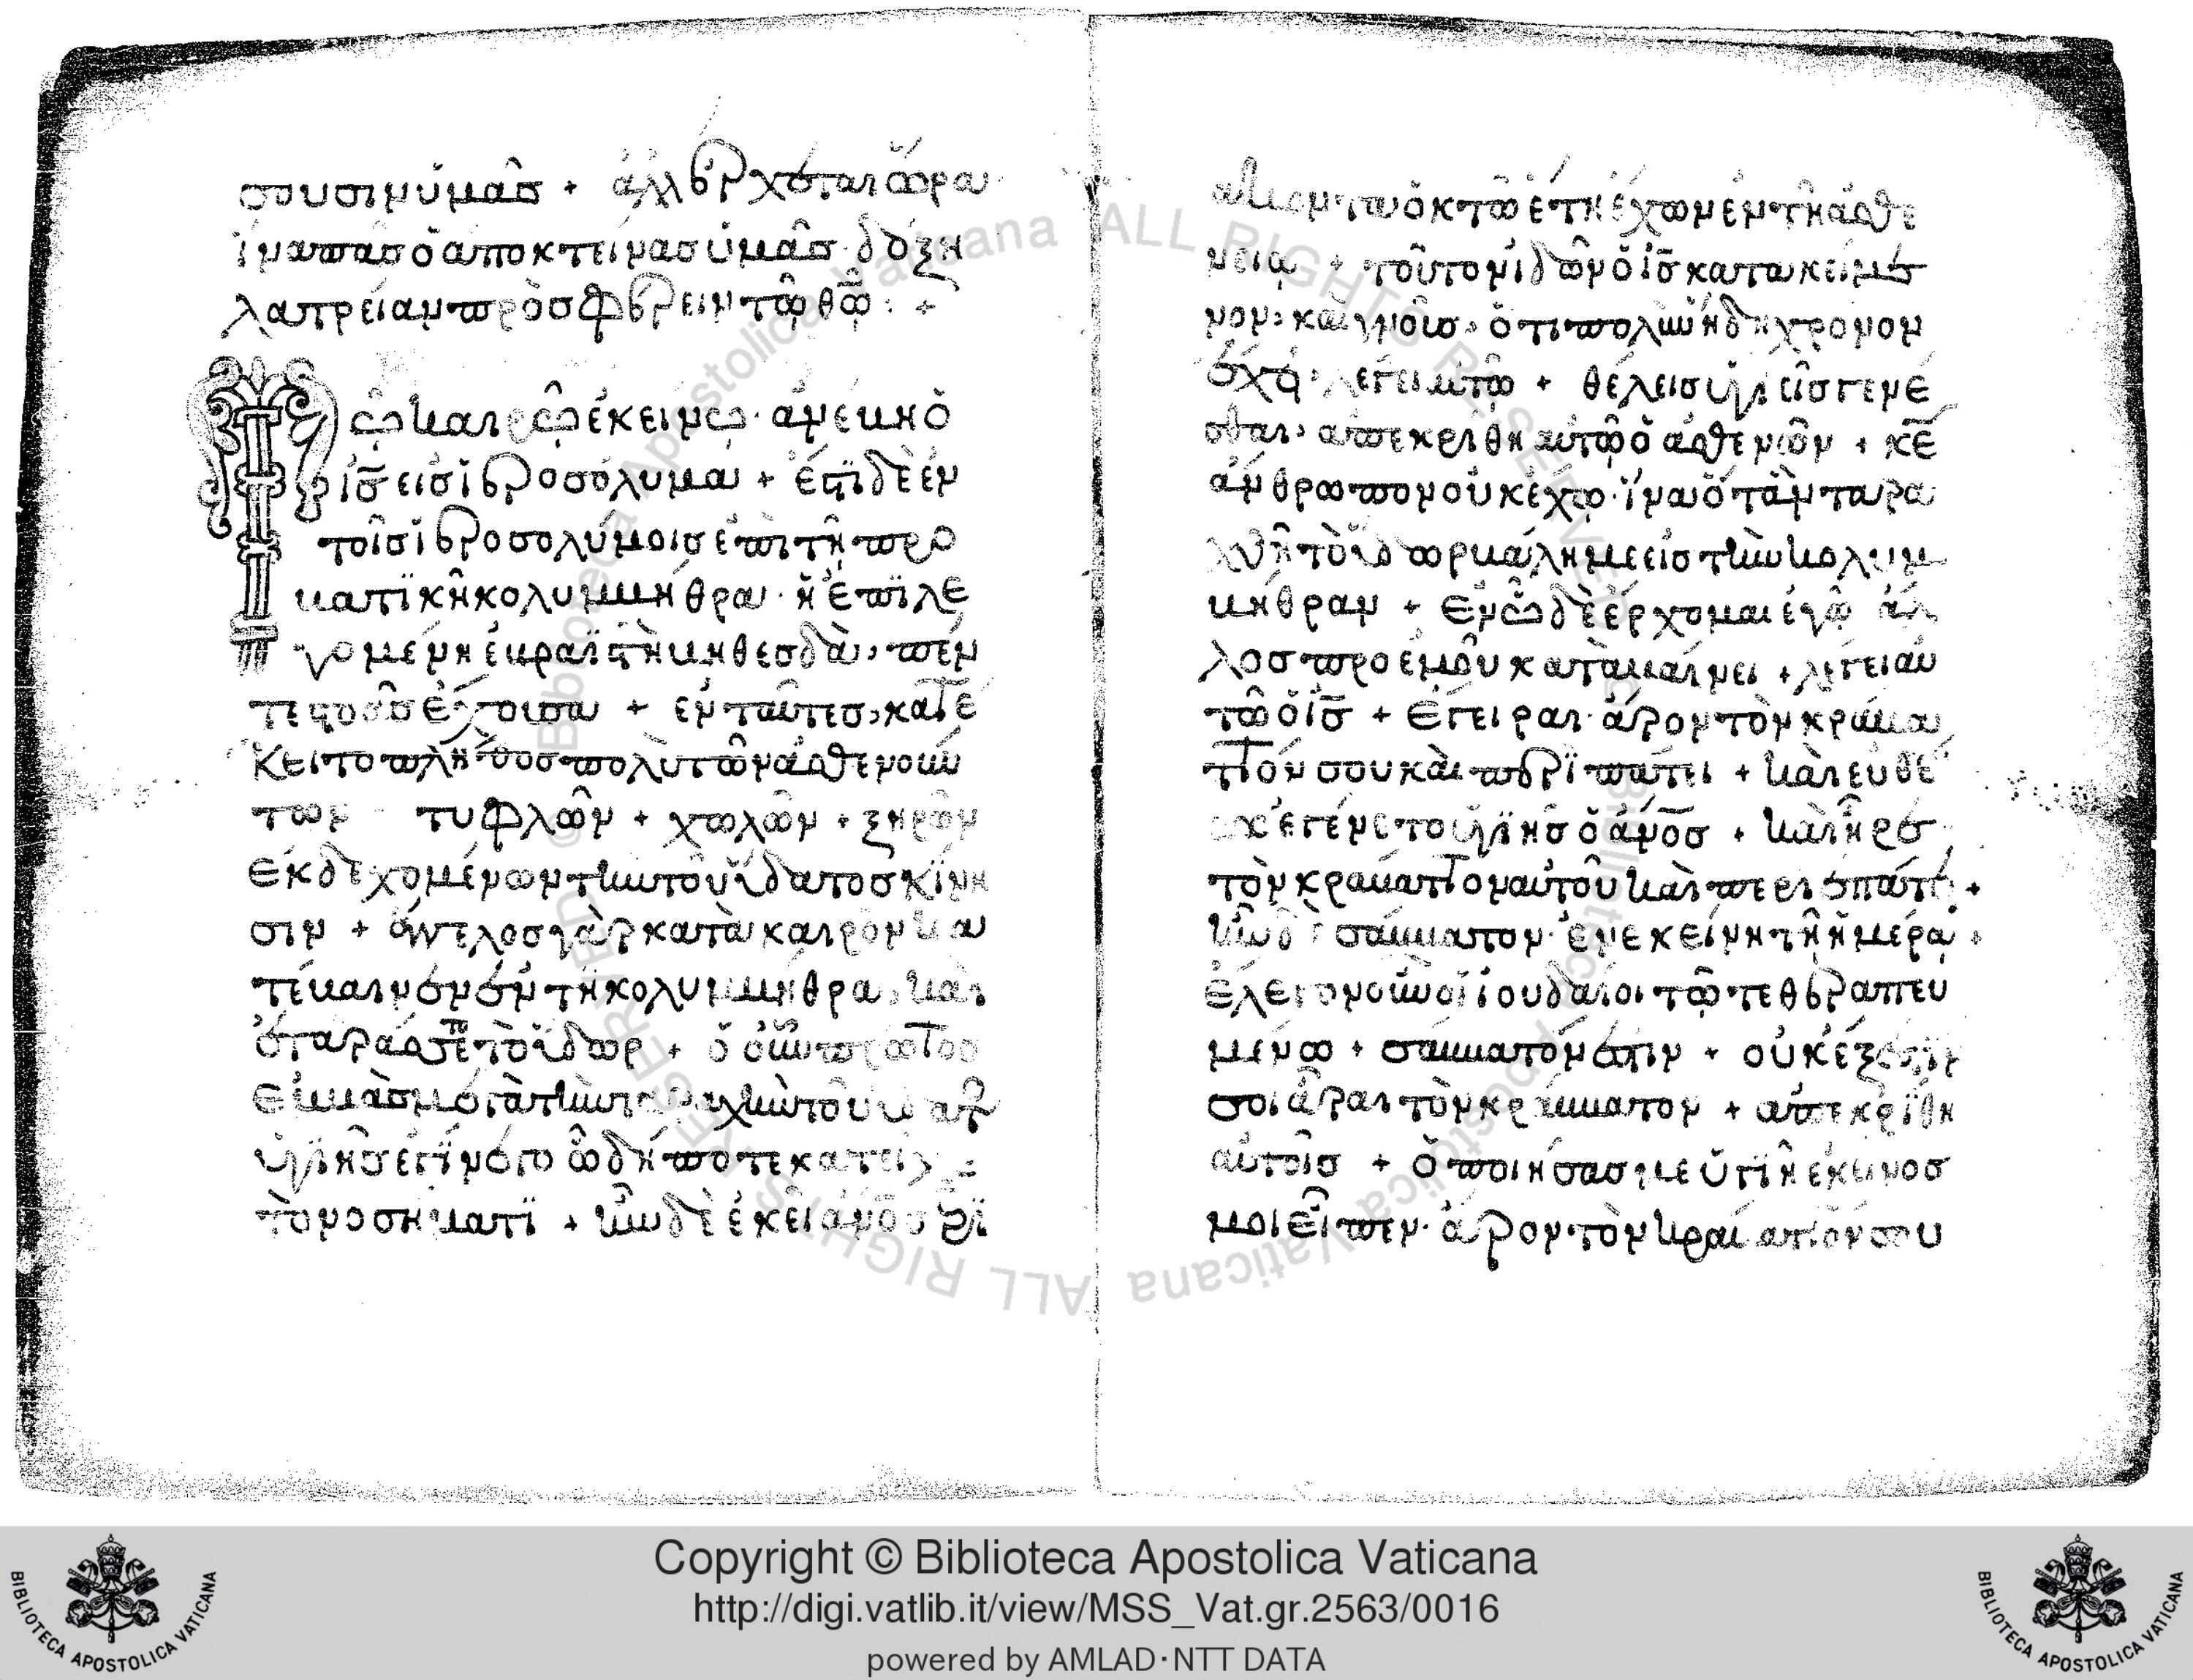 σουσιν ὑμᾶσ + ἀλλ ἔρχεται ὥρα
ἵνα πᾶσ ὁ ἀποκτείνασ ὑμᾶσ· δόξη
λατρείαν προσφέρειν τῶ θῶ: +
Τῶ καιρῶ ἐκείνω· ἀνέβη ὁ
ἰσ εἰσ ἱεροσόλυμα + ἔστι δὲ ἐν
τοῖσ ἱεροσολύμοισ ἐπὶ τῆ προ
βατικῆ κολυμβήθρα· ἡ ἐπιλε
γομένη ἑβραϊστὴ βηθεσδὰ, πέν
τε στοὰσ ἔχουσα + ἐν ταύτεσ, κατέ
κειτο πλῆθοσ πολὺ τῶν ἀσθενούν
των τυφλῶν + χωλῶν + ξηρῶν
ἐκδεχομένων τὴν τοῦ ὕδατοσ κίνη
σιν + ἄγγελοσ γὰρ κατὰ καιρὸν κα
τέβαινεν ἐν τῆ κολυμβήθρα, καὶ
ἐταράσσετο τὸ ὕδωρ + ὁ οὖν πρῶτοσ
ἐμβὰσ μετὰ τὴν ταραχὴν τοῦ ὕδατ
ὑγιὴσ ἐγίνετο ὧ δήποτε κατεί
το νοσήματι + ἦν δὲ ἐκεῖ ἄνοσ τρι
άκοντα ὀκτῶ ἔτη ἔχων ἐν τῆ ἀσθε
νεία + τοῦτον ἰδὼν ὁ ἰσ κατακείμε
νον, καὶ γνοὺσ, ὅτι πολὺν ἤδη χρόνον
ἔχει· λέγει αὐτῶ + θέλεισ ὑγιεῖσ γενέ
σθαι, ἀπεκρίθη αὐτῶ ὁ ἀσθενῶν + κε
ἄνθρωπον οὐκ ἔχω· ἵνα ὅταν ταρα
χθῆ τὸ ὕδωρ βάλη με εἰσ τὴν κολυμ
βήθραν + ἐν ὧ δὲ ἔρχομαι ἐγῶ ἄλ
λοσ προ ἐμοῦ καταβαίνει + λέγει αὐ
τῶ ὁ ἰσ + ἔγειραι· ἄρον τὸν κράβα
ττόν σου καὶ περιπάτει + καὶ εὐθέ
ωσ ἐγένετο ὑγιὴσ ὁ ἄνοσ + καὶ ἦρε
τὸν κράβαττον αὐτοῦ καὶ περιεπάτει +
ἦν δὲ σάββατον· ἐν ἐκείνη τῆ ἡμέρα +
ἔλεγον οὖν οἱ ἰουδαίοι τῶ τεθεραπευ
μένω + σάββατόν ἐστιν + οὐκ ἔξεστιν
σοι ἄραι τὸν κράββατον + ἀπεκρίθη
αὐτοῖσ + ὁ ποιήσασ με ὑγιῆ ἐκεῖνοσ
μοι εἶπεν· ἄρον τὸν κράβαττόν σου
Copyright © Biblioteca Apostolica Vaticana
http://digi.vatlib.it/view/MSS_Vat.gr.2563/0016
powered by AMLAD·NTT DATA
BIBLIOTECA APOSTOLICA VATICANA
BIBLIOTECA APOSTOLICA VATICANA